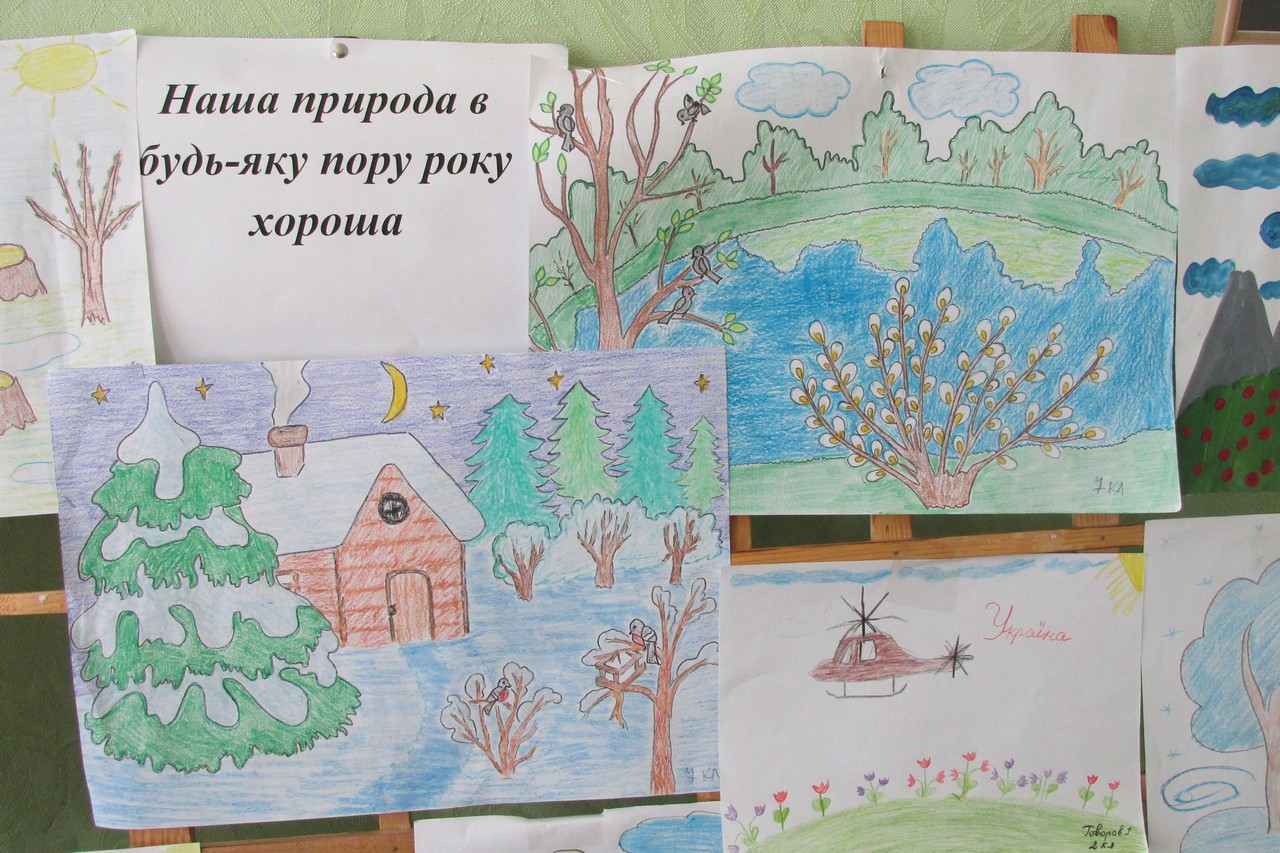 Наша природа в
будь-яку пору року
хороша
7 кл
7 кл
Україна
Говоров І
2 кл